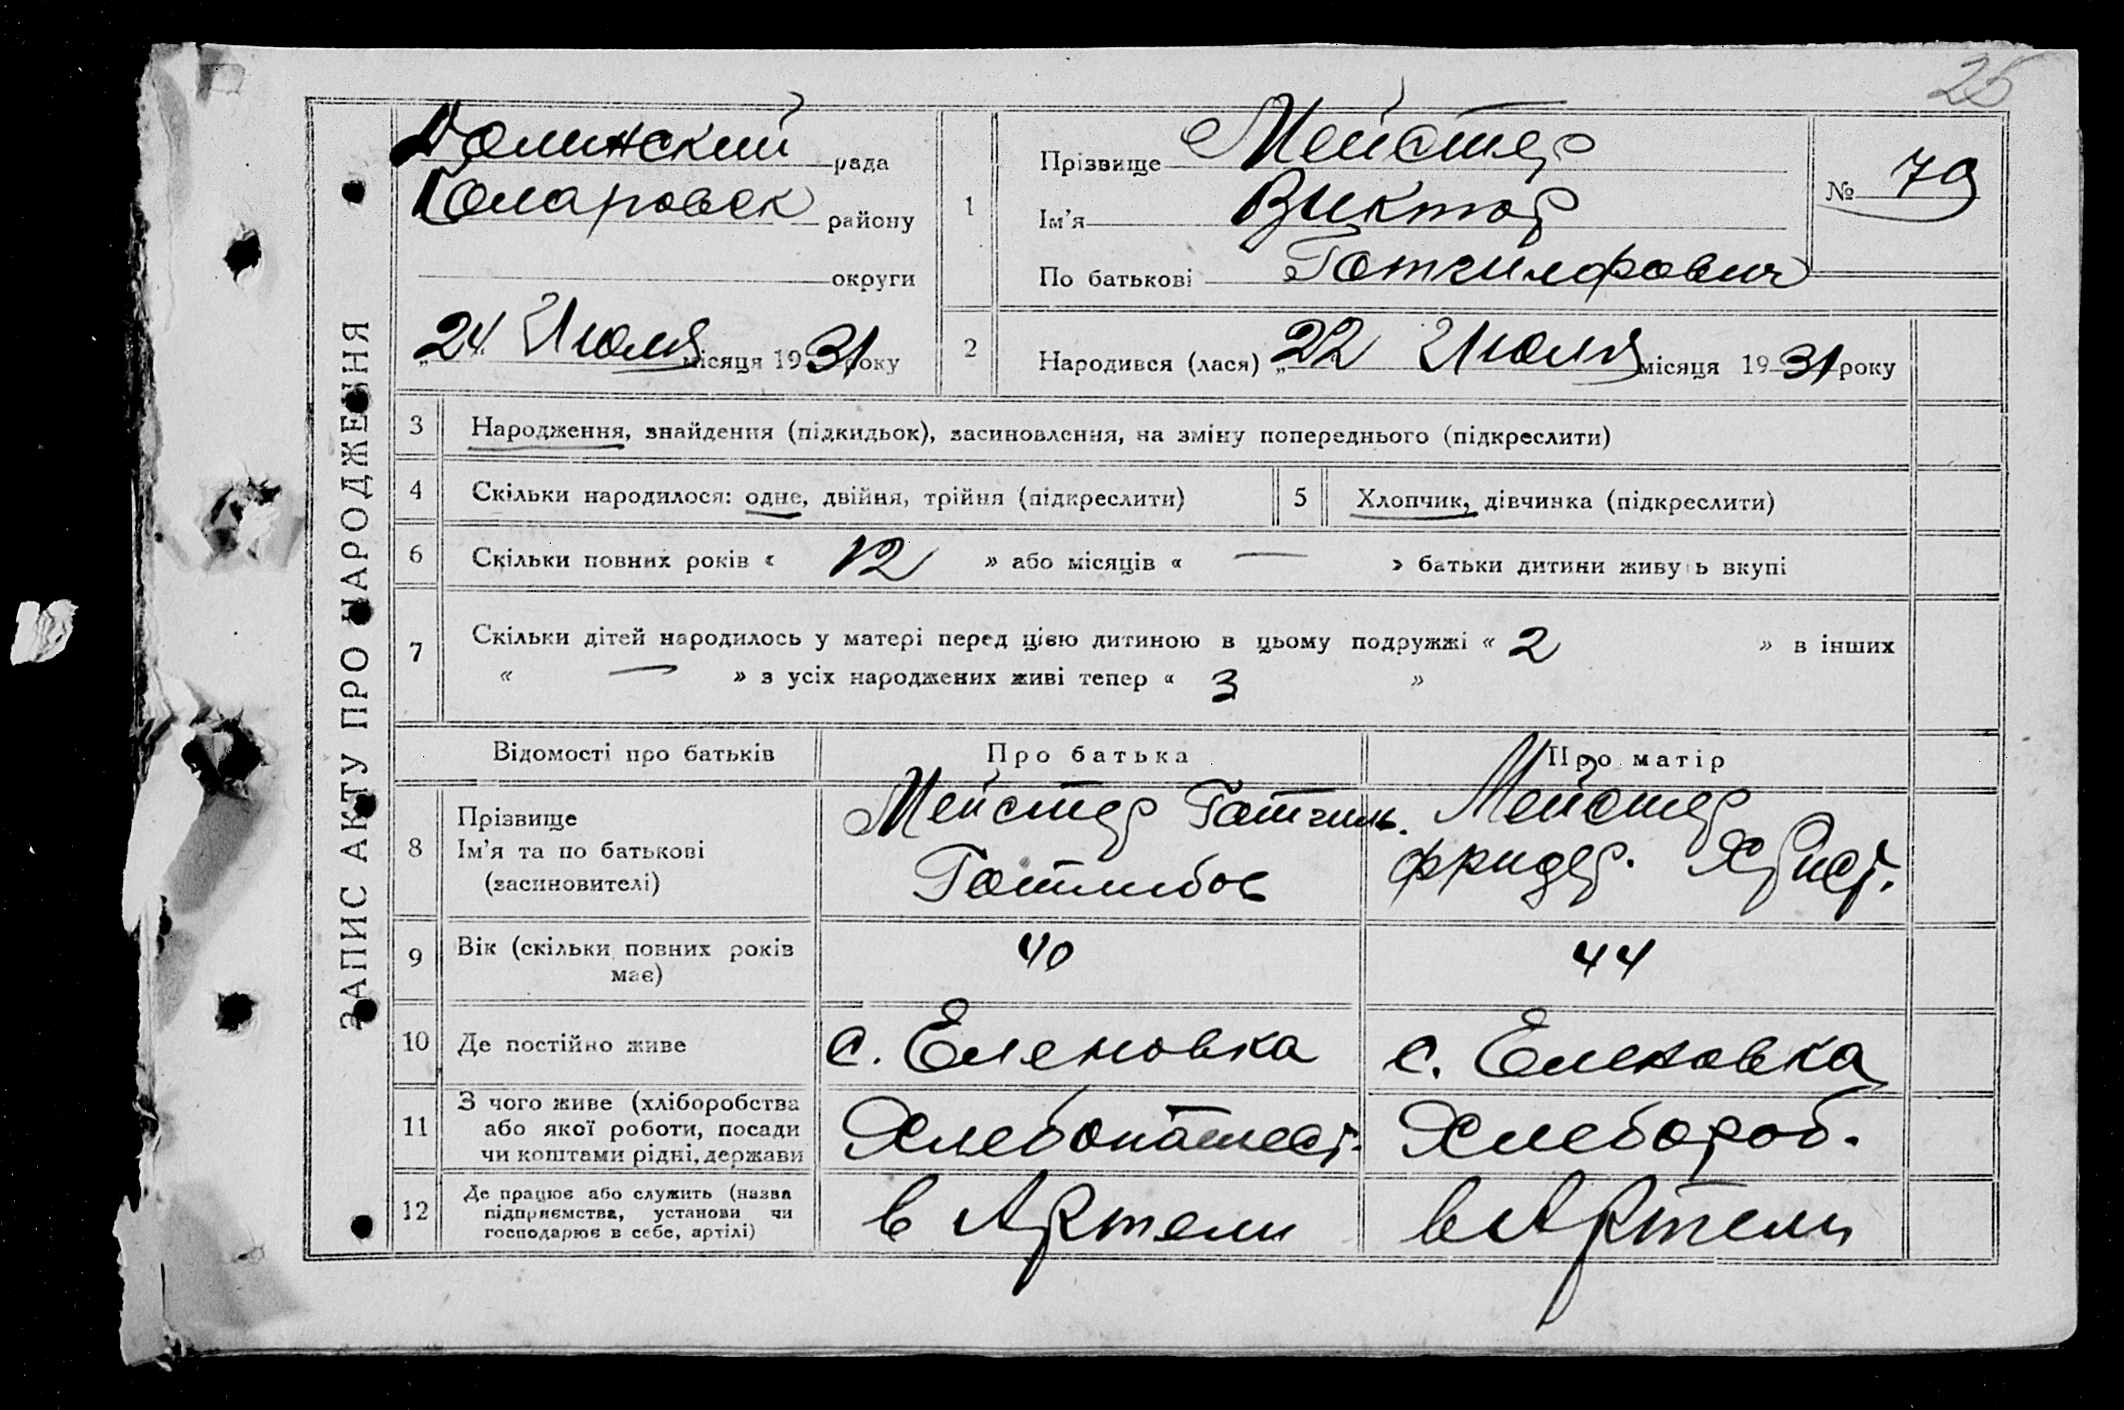 25
ЗАПИС АКТУ ПРО НАРОДЖЕННЯ
Долинский рада
Коларовск району
округи
„24 Июля місяця 1931 року
1
Прізвище Мейстер
Ім’я Виктор
По батькові Готгилфович
№ 79
2
Народився (лася) „22 Июля місяця 1931 року
3 Народження, знайдення (підкидьок), засиновлення, на зміну попереднього (підкреслити)
4 Скільки народилося: одне, двійня, трійня (підкреслити)
5 Хлопчик, дівчинка (підкреслити)
6 Скільки повних років « 12 » або місяців « — » батьки дитини живуть вкупі
7 Скільки дітей народилось у матері перед цією дитиною в цьому подружжі « 2 » в інших
« — » з усіх народжених живі тепер « 3 »
Відомості про батьків Про батька Про матір
8
Прізвище
Ім’я та по батькові
(засиновителі)
Мейстер Готгиль.
Готлибов
Мейстер
Фридер. Христ.
9 Вік (скільки повних років
має)
40
44
10 Де постійно живе с. Еленовка с. Еленовка
11
З чого живе (хліборобства
або якої роботи, посади
чи коштами рідні, держави
Хлебопашест.
Хлебороб.
12
Де працює або служить (назва
підприємства, установи чи
господарює в себе, артілі)
в Артели
в Артели